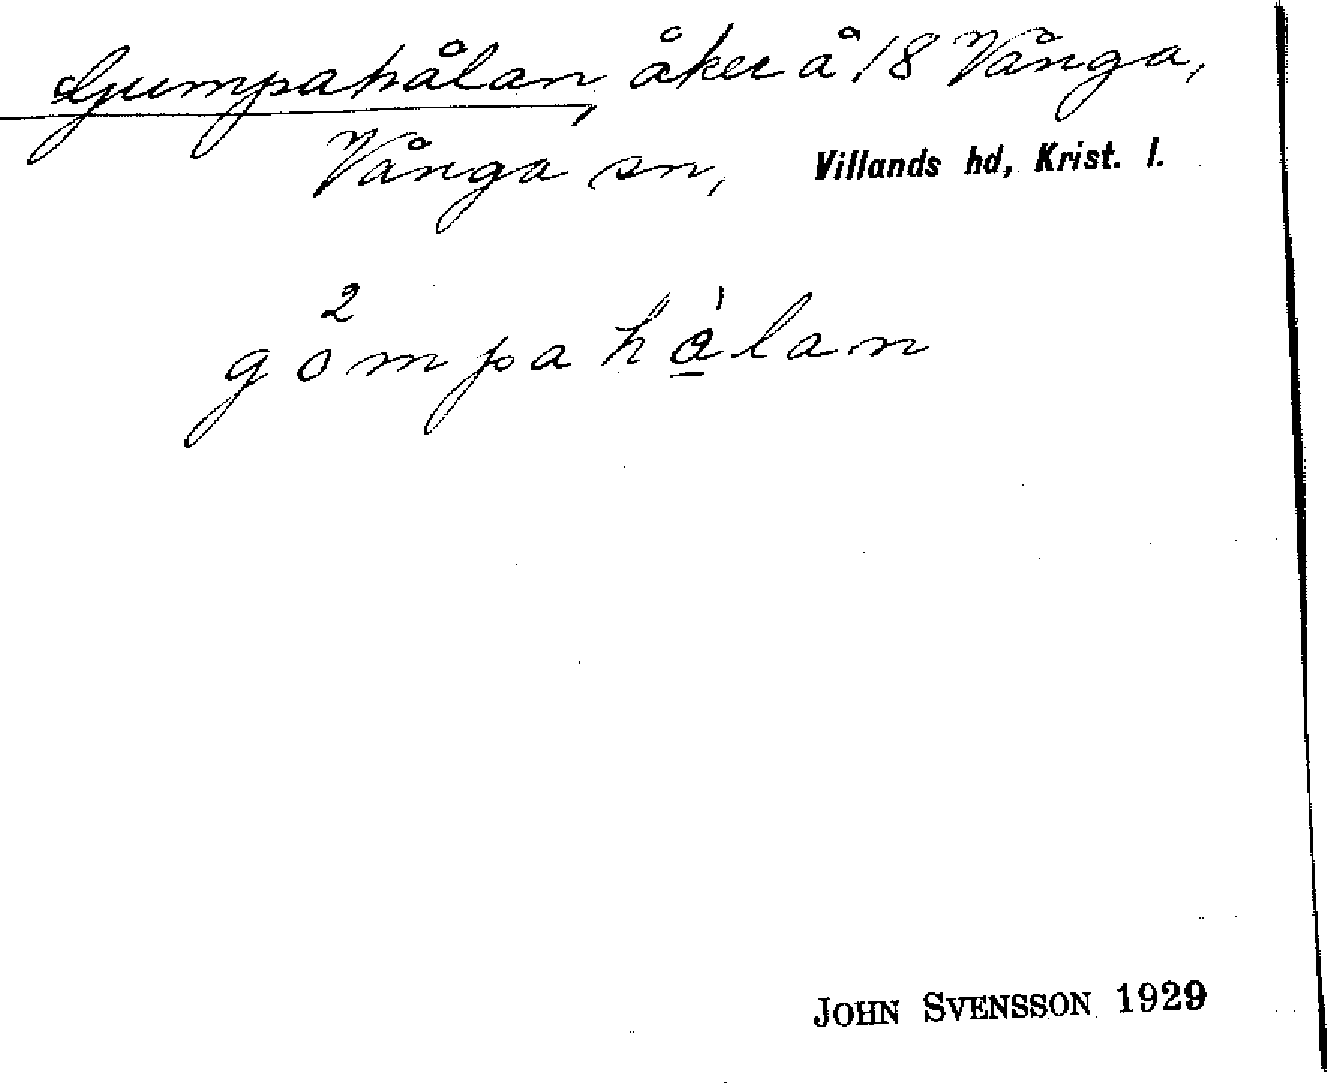 Gumpahålan, åker å 18 Vånga,
Vånga sn, Villands hd, Krist. l.
2
gompahålan
JOHN SVENSSON 1929